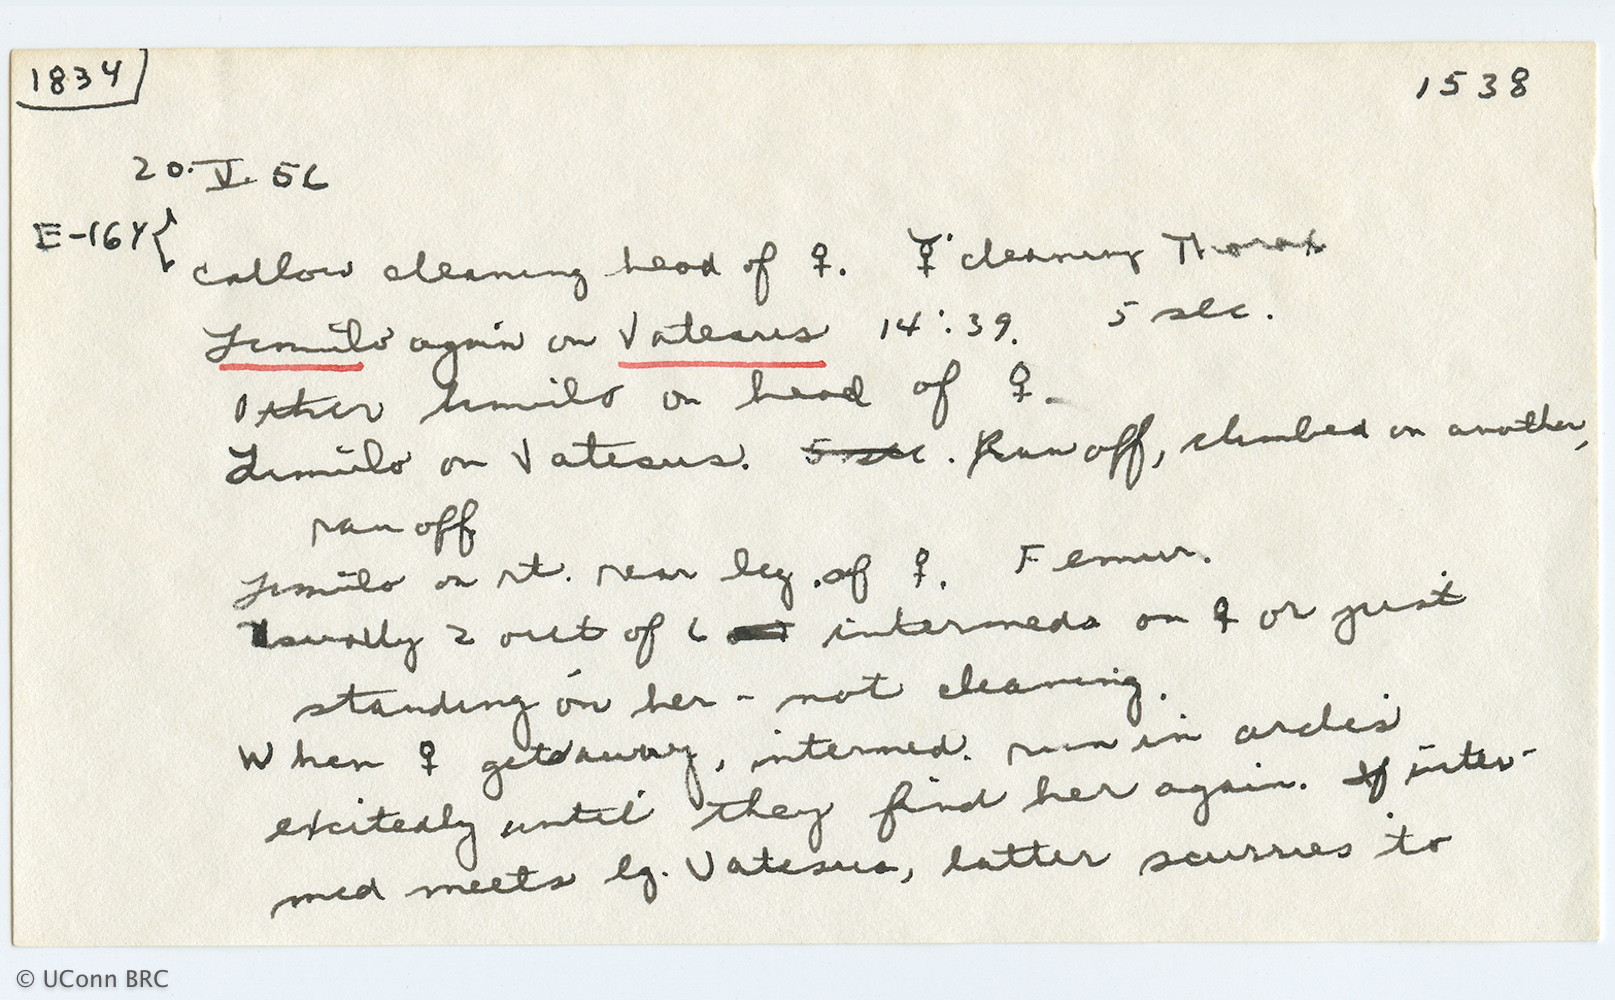 1834
1538
20. V. 56
E-164 {
callow cleaning head of ♀. ☿ cleaning Thorax
Limulo again on Vatesus 14:39. 5 sec.
Other Limulo on head of ♀.
Limulo on Vatesus. 5 sec. Ran off, climbed on another,
ran off
Limulo on rt. rear leg of ♀. Femur.
Usually 2 out of 6 intermeds on ♀ or just
standing on her - not cleaning.
When ♀ gets away, intermed. run in circles
excitedly until they find her again. If inter-
med meets lg. Vatesus, latter scurries to
© UConn BRC